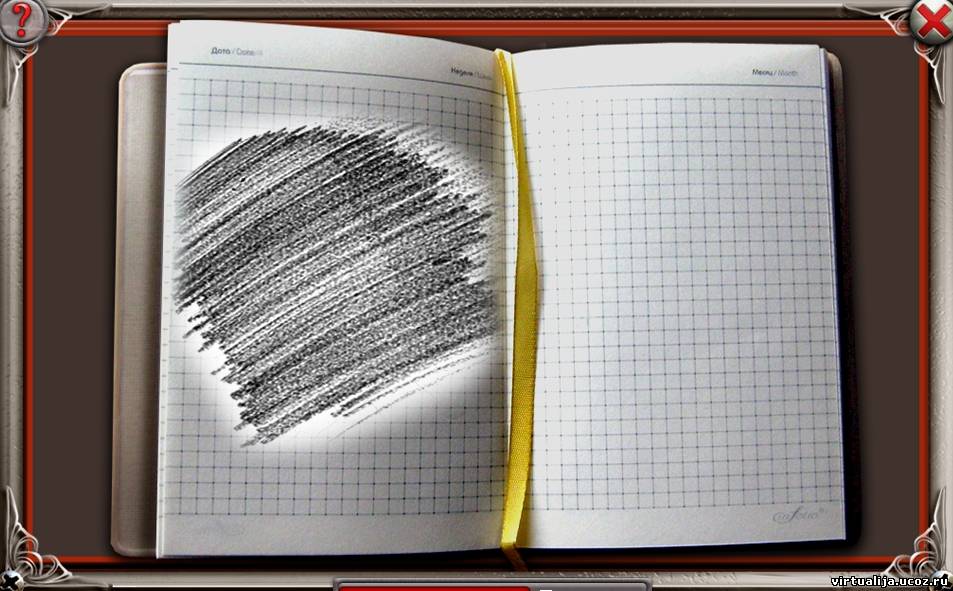 Дата / Date
Неделя /
Месяц / Month
infolio
virtualija.ucoz.ru